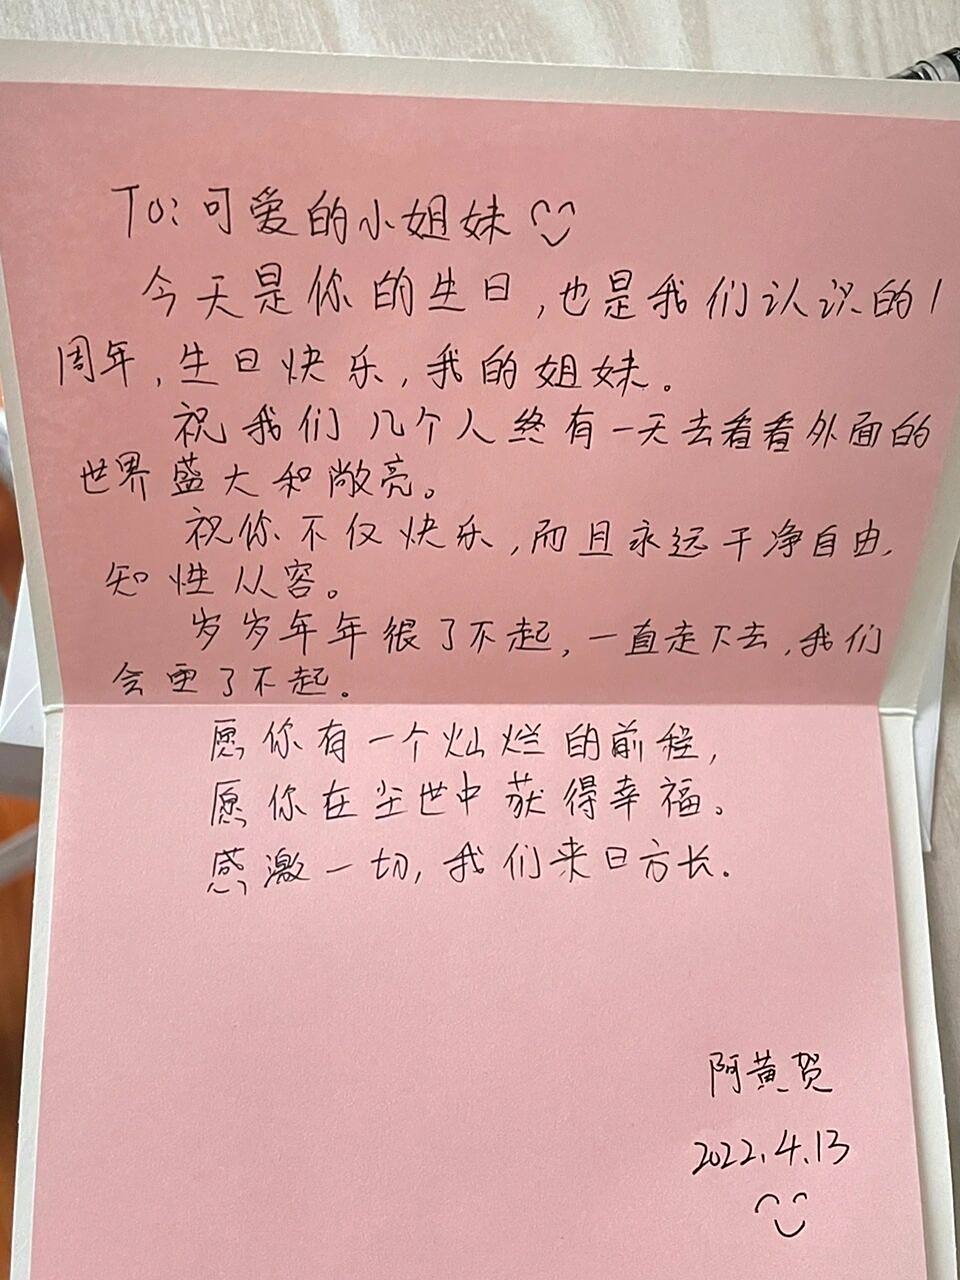 To:可爱的小姐妹
今天是你的生日,也是我们认识的1
周年,生日快乐,我的姐妹。
祝我们几个人终有一天去看看外面的
世界盛大和敞亮。
祝你不仅快乐,而且永远干净自由,
知性从容。
岁岁年年很了不起,一直走下去,我们
会更了不起.
愿你有一个灿烂的前程,
愿你在尘世中获得幸福。
感激一切,我们来日方长.
阿黄贺
2022.4.13